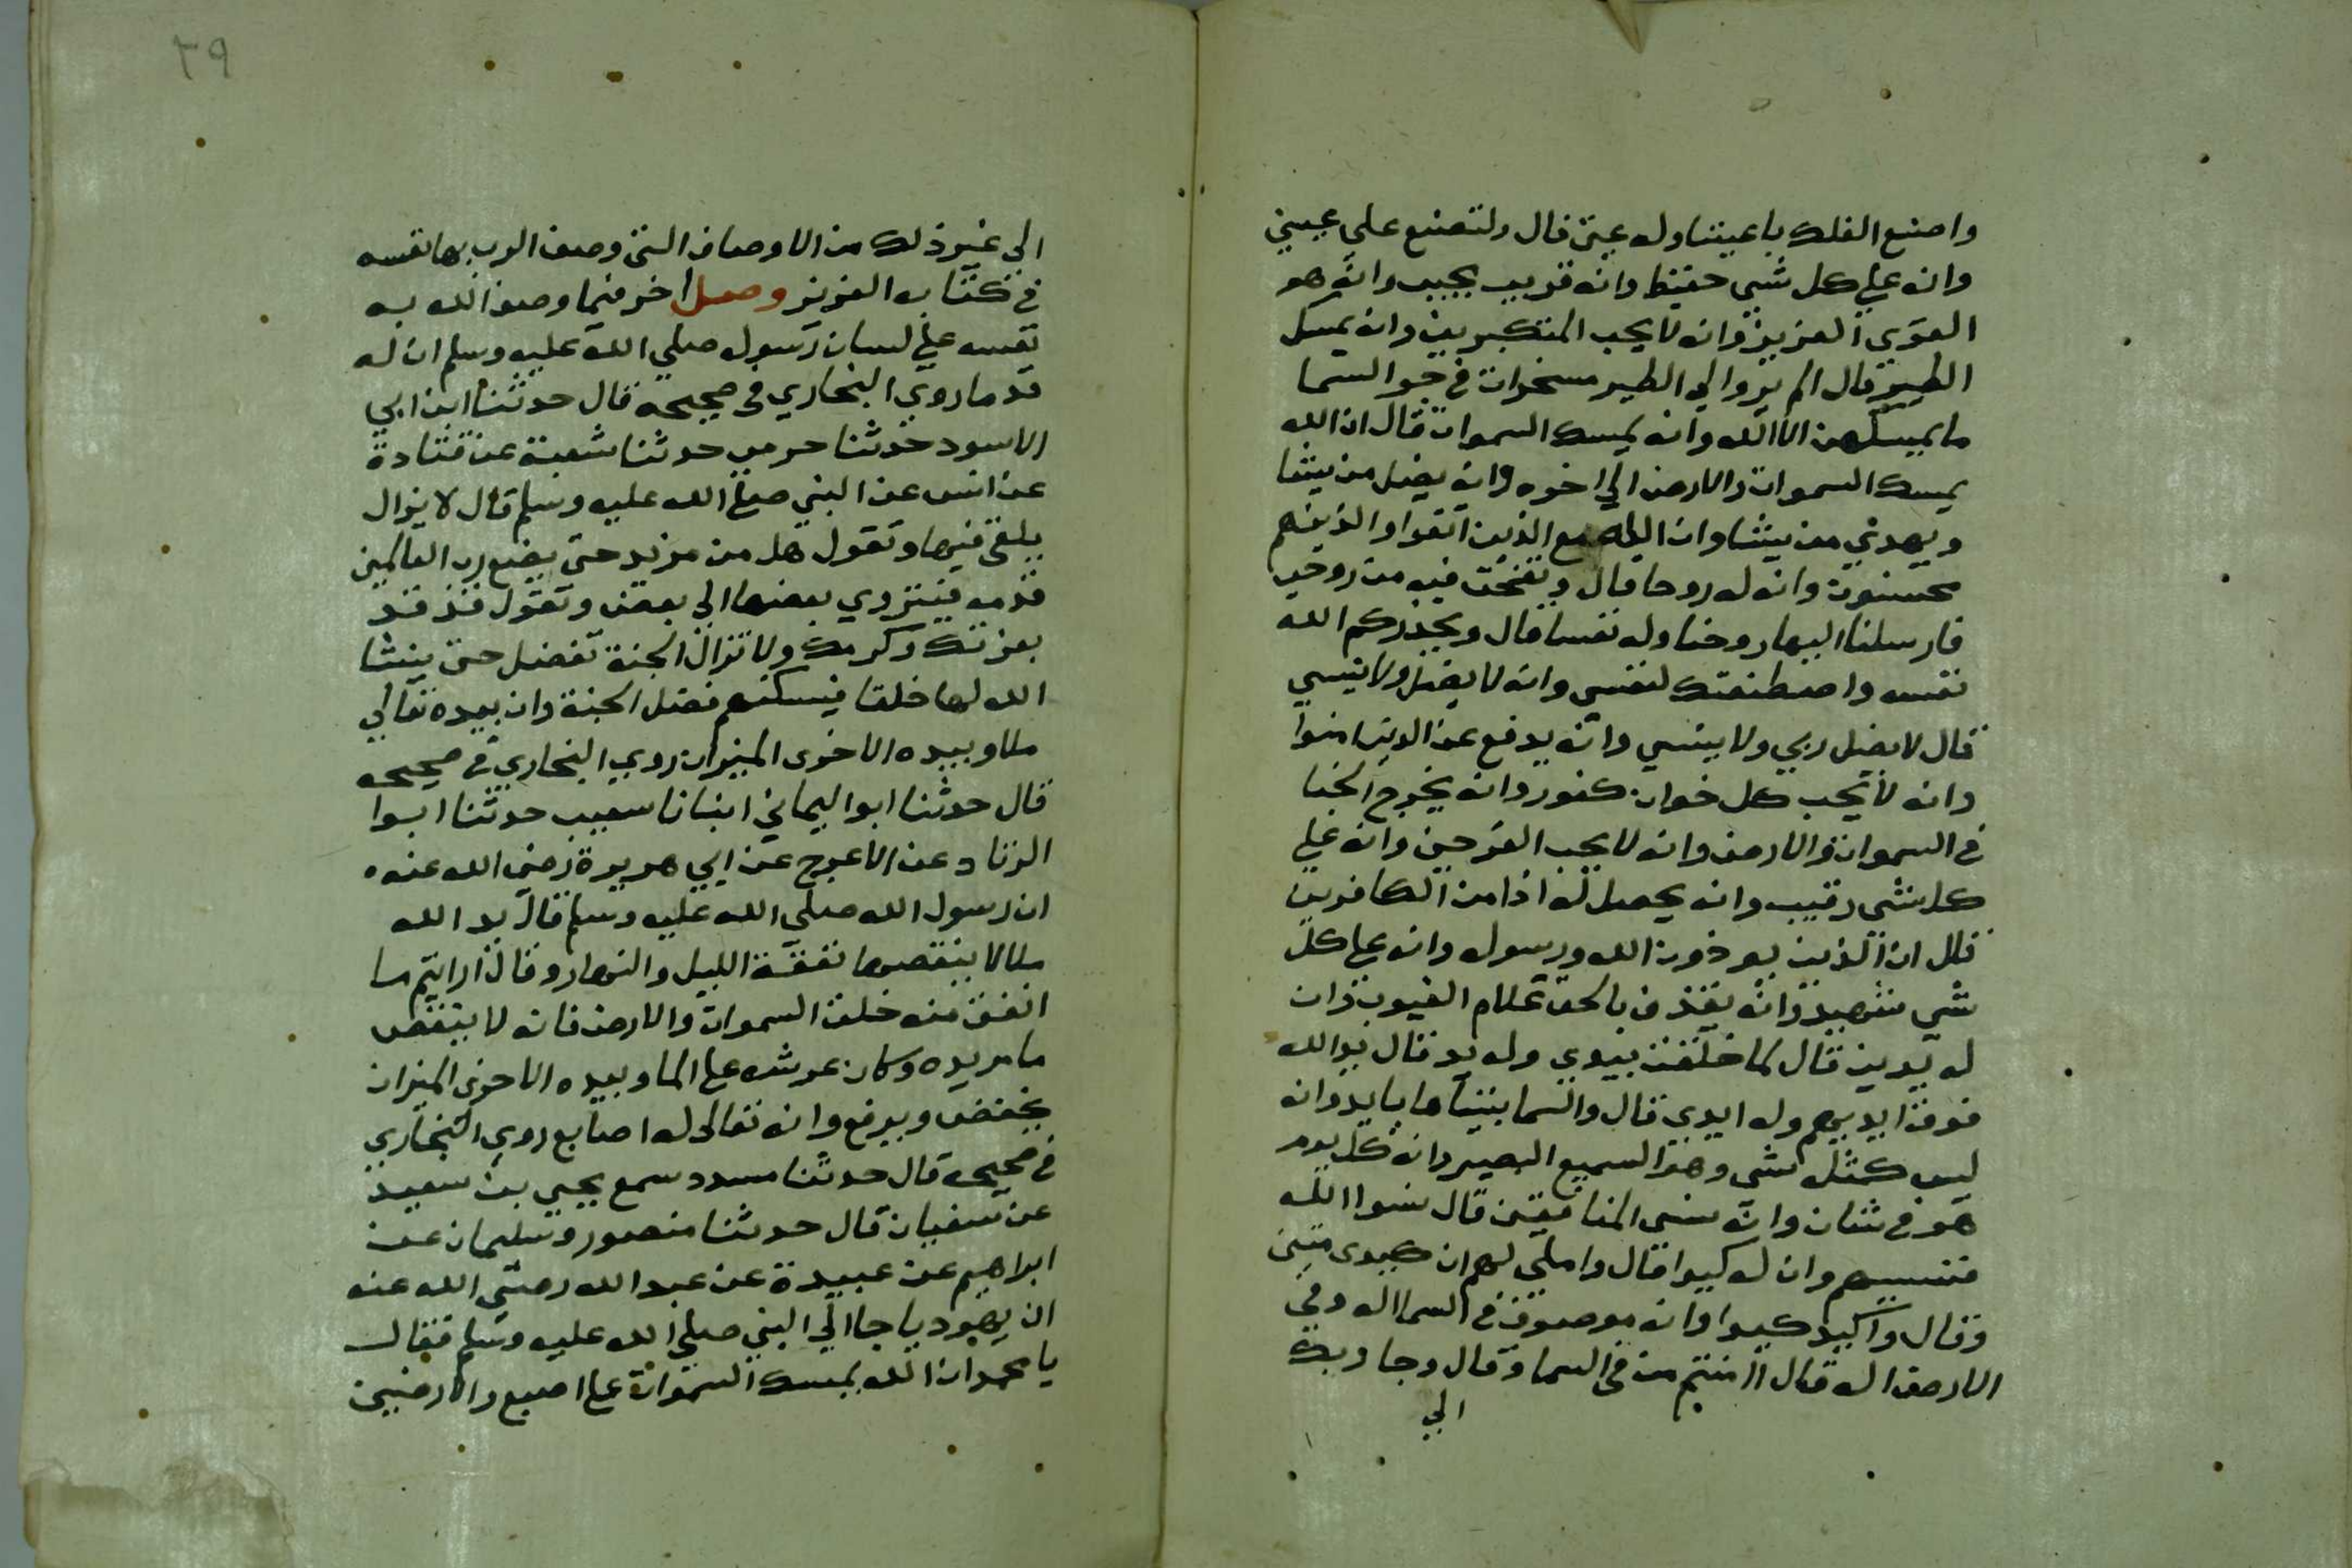 واصنع الفلك باعيننا وله عين قال ولتصنع على عيني
وانه على كل شي حفيظ وانه قريب مجيب وانه هو
القوي العزيز وانه لا يحب المتكبرين وانه يمسك
الطير قال الم يروا الي الطير مسخرات في جو السما
ما يمسكهن الا الله وانه يمسك السموات قال ان الله
يمسك السموات والارض الي اخره وانه يضل من يشا
ويهدي من يشا وان الله مع الذين اتقوا والذينهم
محسنون وانه له روحا قال ونفخت فيه من روحي
فارسلنا اليها روحنا وله نفسا قال ويحذركم الله
نفسه واصطنعتك لنفسي وانه لا يضل ولا ينسي
قال لا يضل ربي ولا ينسي وانه يدفع عن الدين امنوا
وانه لا يحب كل خوان كفور وانه يخرج الخبا
في السموات والارض وانه لا يحب الفرحين وانه على
كل شي رقيب وانه يحصل له اذا من الكافرين
قال ان الذين يوذون الله ورسوله وانه على كل
شي شهيد وانه يقذف بالحق علام الغيوب وان
له يدين قال لما خلقت بيدي وله يد قال يد الله
فوق ايديهم وله ايدي قال والسما بنيناها بايد وانه
ليس كمثله شي وهو السميع البصير وانه كل يوم
هو في شان وانه نسي المنافقين قال نسوا الله
فنسيهم وان له كيدا قال واملي لهم ان كيدي متين
وقال واكيد كيدا وانه موصوف في السما اله وفي
الارض اله قال اامنتم من في السما وقال وجا ربك
الي
٣٩
الي غير ذلك من الاوصاف التي وصف الرب بها نفسه
في كتابه العزيز وصل اخر فيما وصف الله به
نفسه على لسان رسوله صلي الله عليه وسلم ان له
قدما روي البخاري في صحيحه قال حدثنا ابن ابي
الاسود حدثنا حرمي حدثنا شعبة عن قتادة
عن انس عن النبي صلى الله عليه وسلم قال لا يزال
يلقى فيها وتقول هل من مزيد حتى يضع رب العالمين
قدمه فينزوي بعضها الي بعض وتقول قد قد
بعزتك وكرمك ولا تزال الجنة تفضل حتى ينشا
الله لها خلقا فيسكنهم فضل الجنة وان بيده تعالي
ملا وبيده الاخرى الميزان روي البخاري في صحيحه
قال حدثنا ابو اليماني انبانا سعيب حدثنا ابوا
الزناد عن الاعرج عن ابي هريرة رضي الله عنه
ان رسول الله صلي الله عليه وسلم قال يد الله
ملا لا ينقصها نفقة الليل والنهار وقال ارايتم ما
انفق منه خلق السموات والارض فانه لا ينقص
ما مريده وكان عرشه على الما وبيده الاخرى الميزان
يخفض ويرفع وانه تعالى له اصابع روي البخاري
في صحيحه قال حدثنا مسدد سمع يحيي بن سعيد
عن سفيان قال حدثنا منصور وسليمان عن
ابراهيم عن عبيدة عن عبد الله رضي الله عنه
ان يهوديا جا الي النبي صلي الله عليه وسلم فقال
يا محمد ان الله يمسك السموات على اصبع والارضين